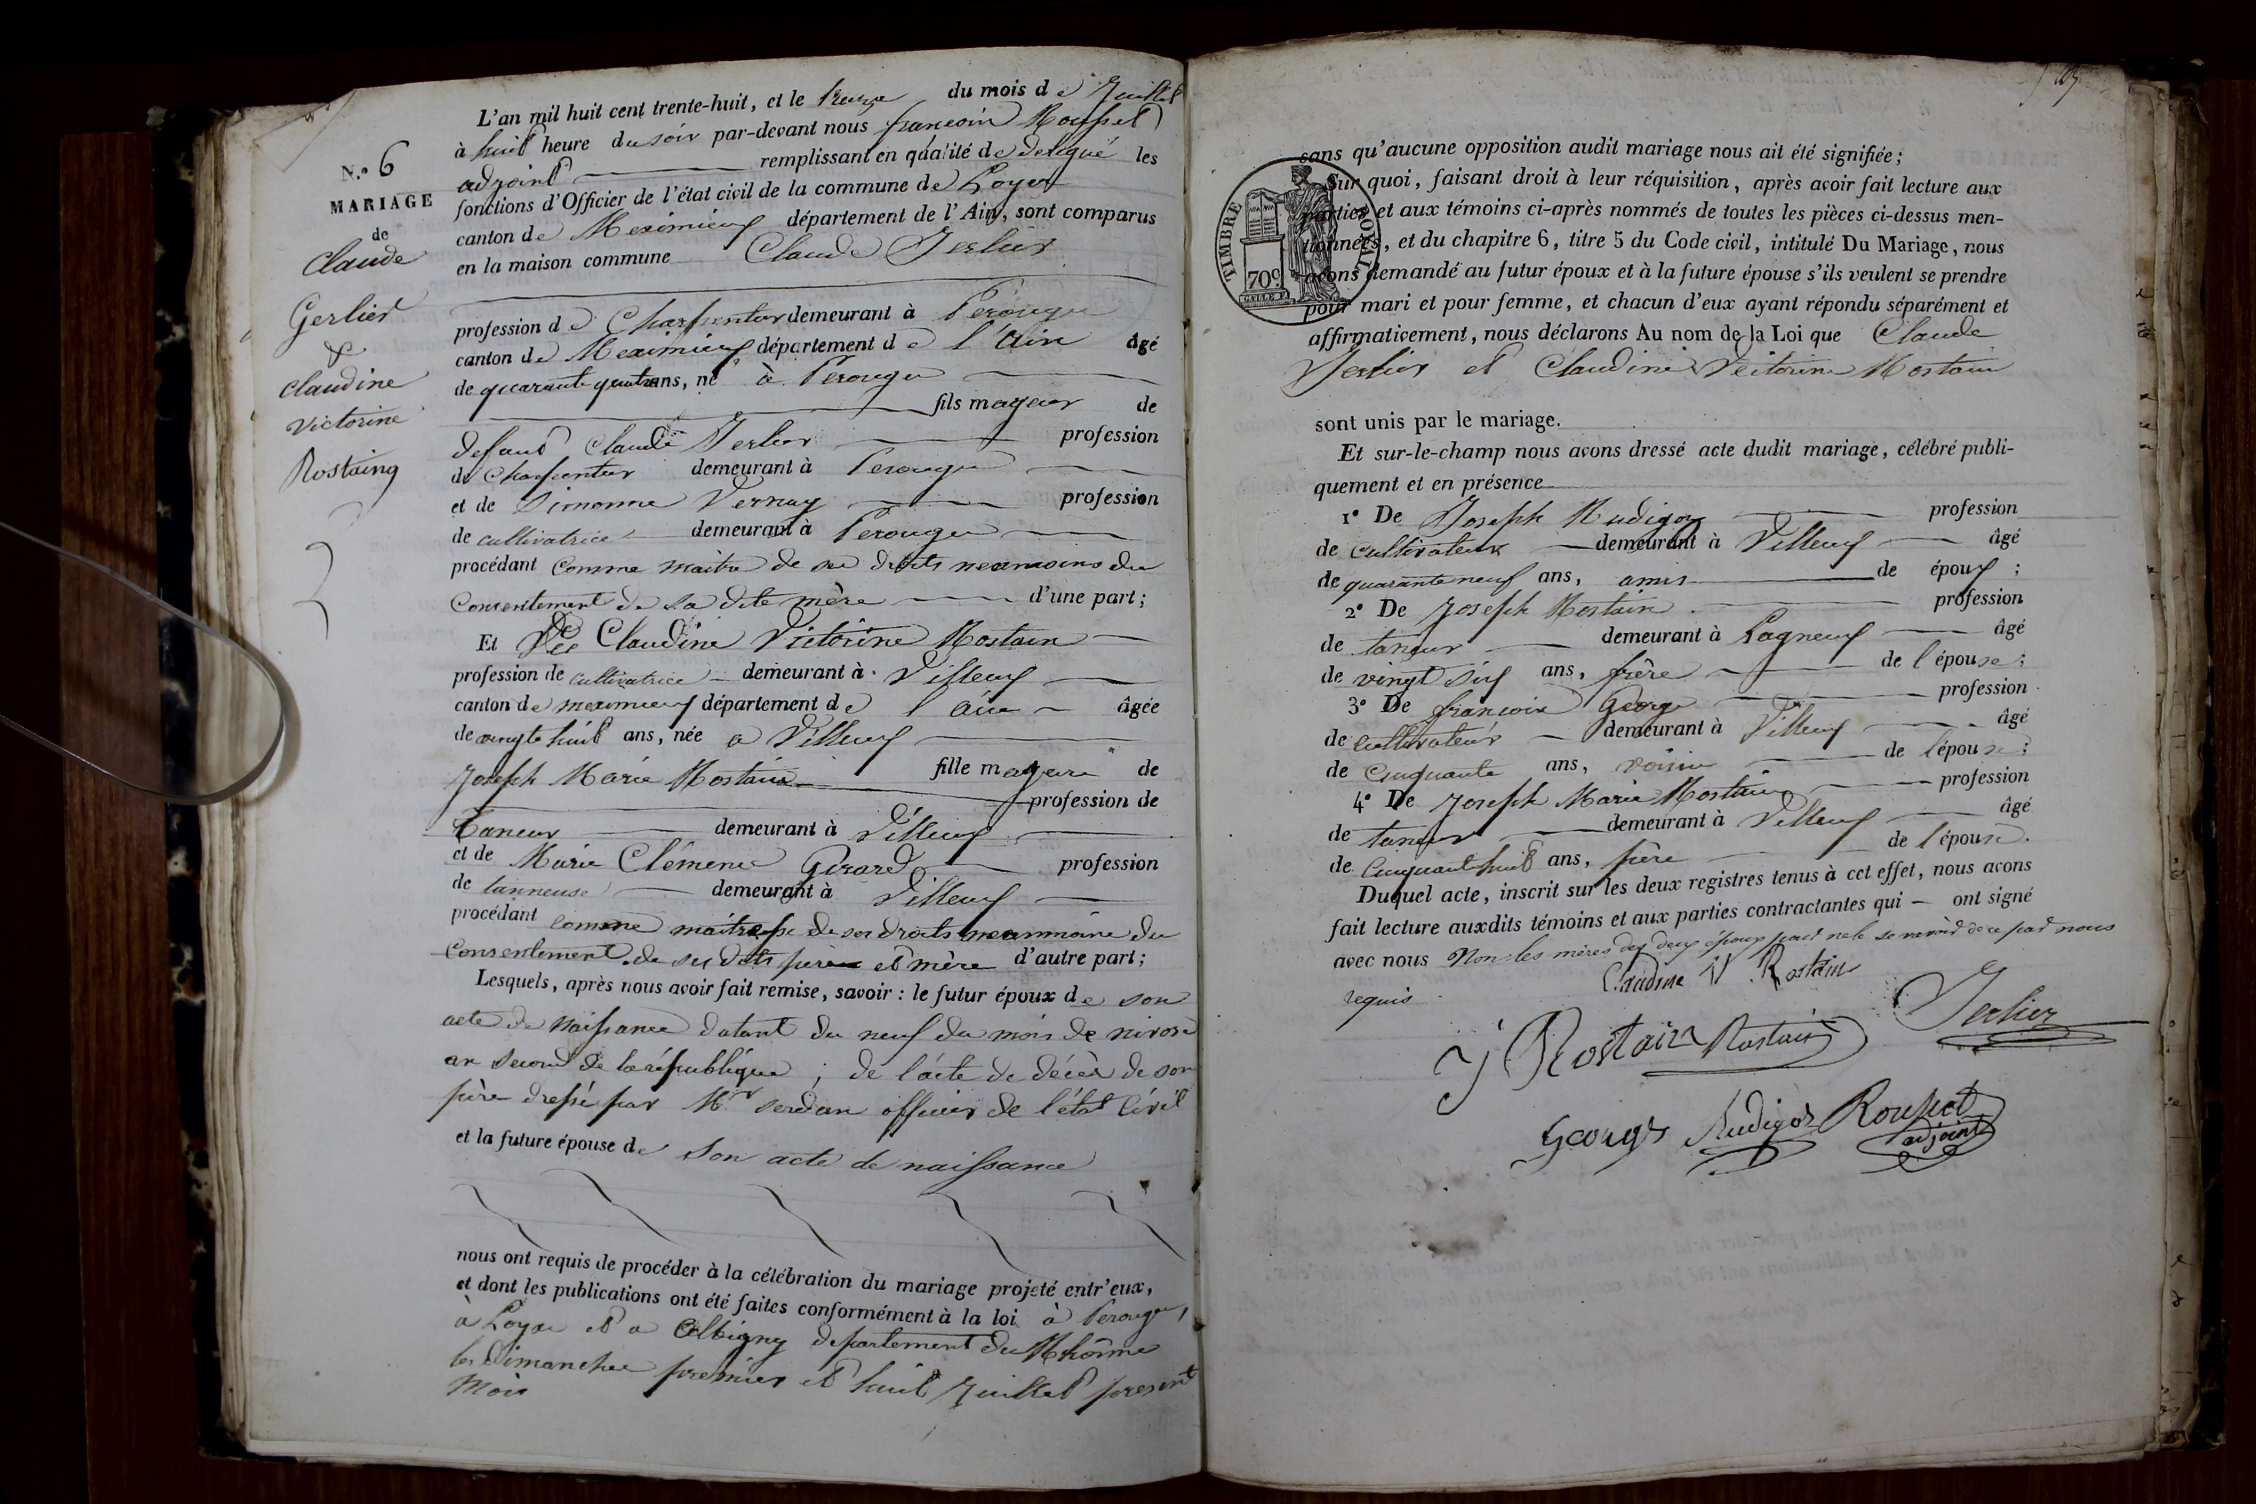 N.º 6
MARIAGE
de
Claude
Gerlier
&
Claudine
Victorine
Rostaing
L'an mil huit cent trente-huit, et le treize du mois de Juillet
à huit heure du soir par-devant nous françois Rousset
adjoint remplissant en qualité de delegué les
fonctions d'Officier de l'état civil de la commune de Loyes
canton de Meximieux département de l'Ain, sont comparus
en la maison commune Claude Jerlier
profession de Charpentier demeurant à Pérouges
canton de Meximieux département de l'Ain âgé
de quarante quatre ans, né à Perouges
fils mayeur de
defaut Claude Jerlier profession
de Charpentier demeurant à Perouges
et de Simonne Vernay profession
de cultivatrice demeurant à Perouges
procédant comme maitre de ses droits neanmoins du
Consentement de sa dite mère d'une part;
Et Dlle Claudine Victorine Rostain
profession de cultivatrice demeurant à Villieux
canton de meximieux département de l'Ain âgée
de vingte huit ans, née a Villieux
Joseph Marie Rostain fille mayeure de
profession de
Taneur demeurant à Villieux
et de Marie Clémence Girard profession
de tanneuse demeurant à Villieux
procédant comme maîtresse de ses droits neanmoins du
Consentement de ses dits père et mère d'autre part;
Lesquels, après nous avoir fait remise, savoir : le futur époux de son
acte de naissance datant du neuf du mois de nivose
an second de la république ; de l'acte de décès de son
père dressé par Mr serdan officier de l'état Civil
et la future épouse de son acte de naissance
nous ont requis de procéder à la célébration du mariage projeté entr'eux,
et dont les publications ont été faites conformément à la loi à Perouges,
à Loyes et a Albigny departement du Rhône
les Dimanches premier et huit Juillet present
mois
sans qu'aucune opposition audit mariage nous ait été signifiée;
Sur quoi, faisant droit à leur réquisition, après avoir fait lecture aux
parties et aux témoins ci-après nommés de toutes les pièces ci-dessus men-
tionnées, et du chapitre 6, titre 5 du Code civil, intitulé Du Mariage, nous
avons demandé au futur époux et à la future épouse s'ils veulent se prendre
pour mari et pour femme, et chacun d'eux ayant répondu séparément et
affirmativement, nous déclarons Au nom de la Loi que Claude
Jerlier et Claudine Victorine Rostain
TIMBRE ROYAL
70c.
sont unis par le mariage.
Et sur-le-champ nous avons dressé acte dudit mariage, célébré publi-
quement et en présence
1º De Joseph Rudigoz profession
de cultivateur demeurant à Villieux âgé
de quarante neuf ans, amis de époux ;
2º De Joseph Rostain profession
de taneur demeurant à Lagneux âgé
de vingt six ans, frère de l'épouse;
3º De françois George profession
de cultivateur demeurant à Villieux âgé
de Cinquante ans, voisin de l'épouse;
4º De Joseph Marie Rostain profession
de taneur demeurant à Villieux âgé
de Cinquant huit ans, père de l'épouse.
Duquel acte, inscrit sur les deux registres tenus à cet effet, nous avons
fait lecture auxdits témoins et aux parties contractantes qui ont signé
avec nous Non les mères des deux époux pour ne le savoir de ce par nous
requis
Claudine V Rostain
Jerlier
J Rostain Rostain
Georges Rudigoz Rousset
adjoint